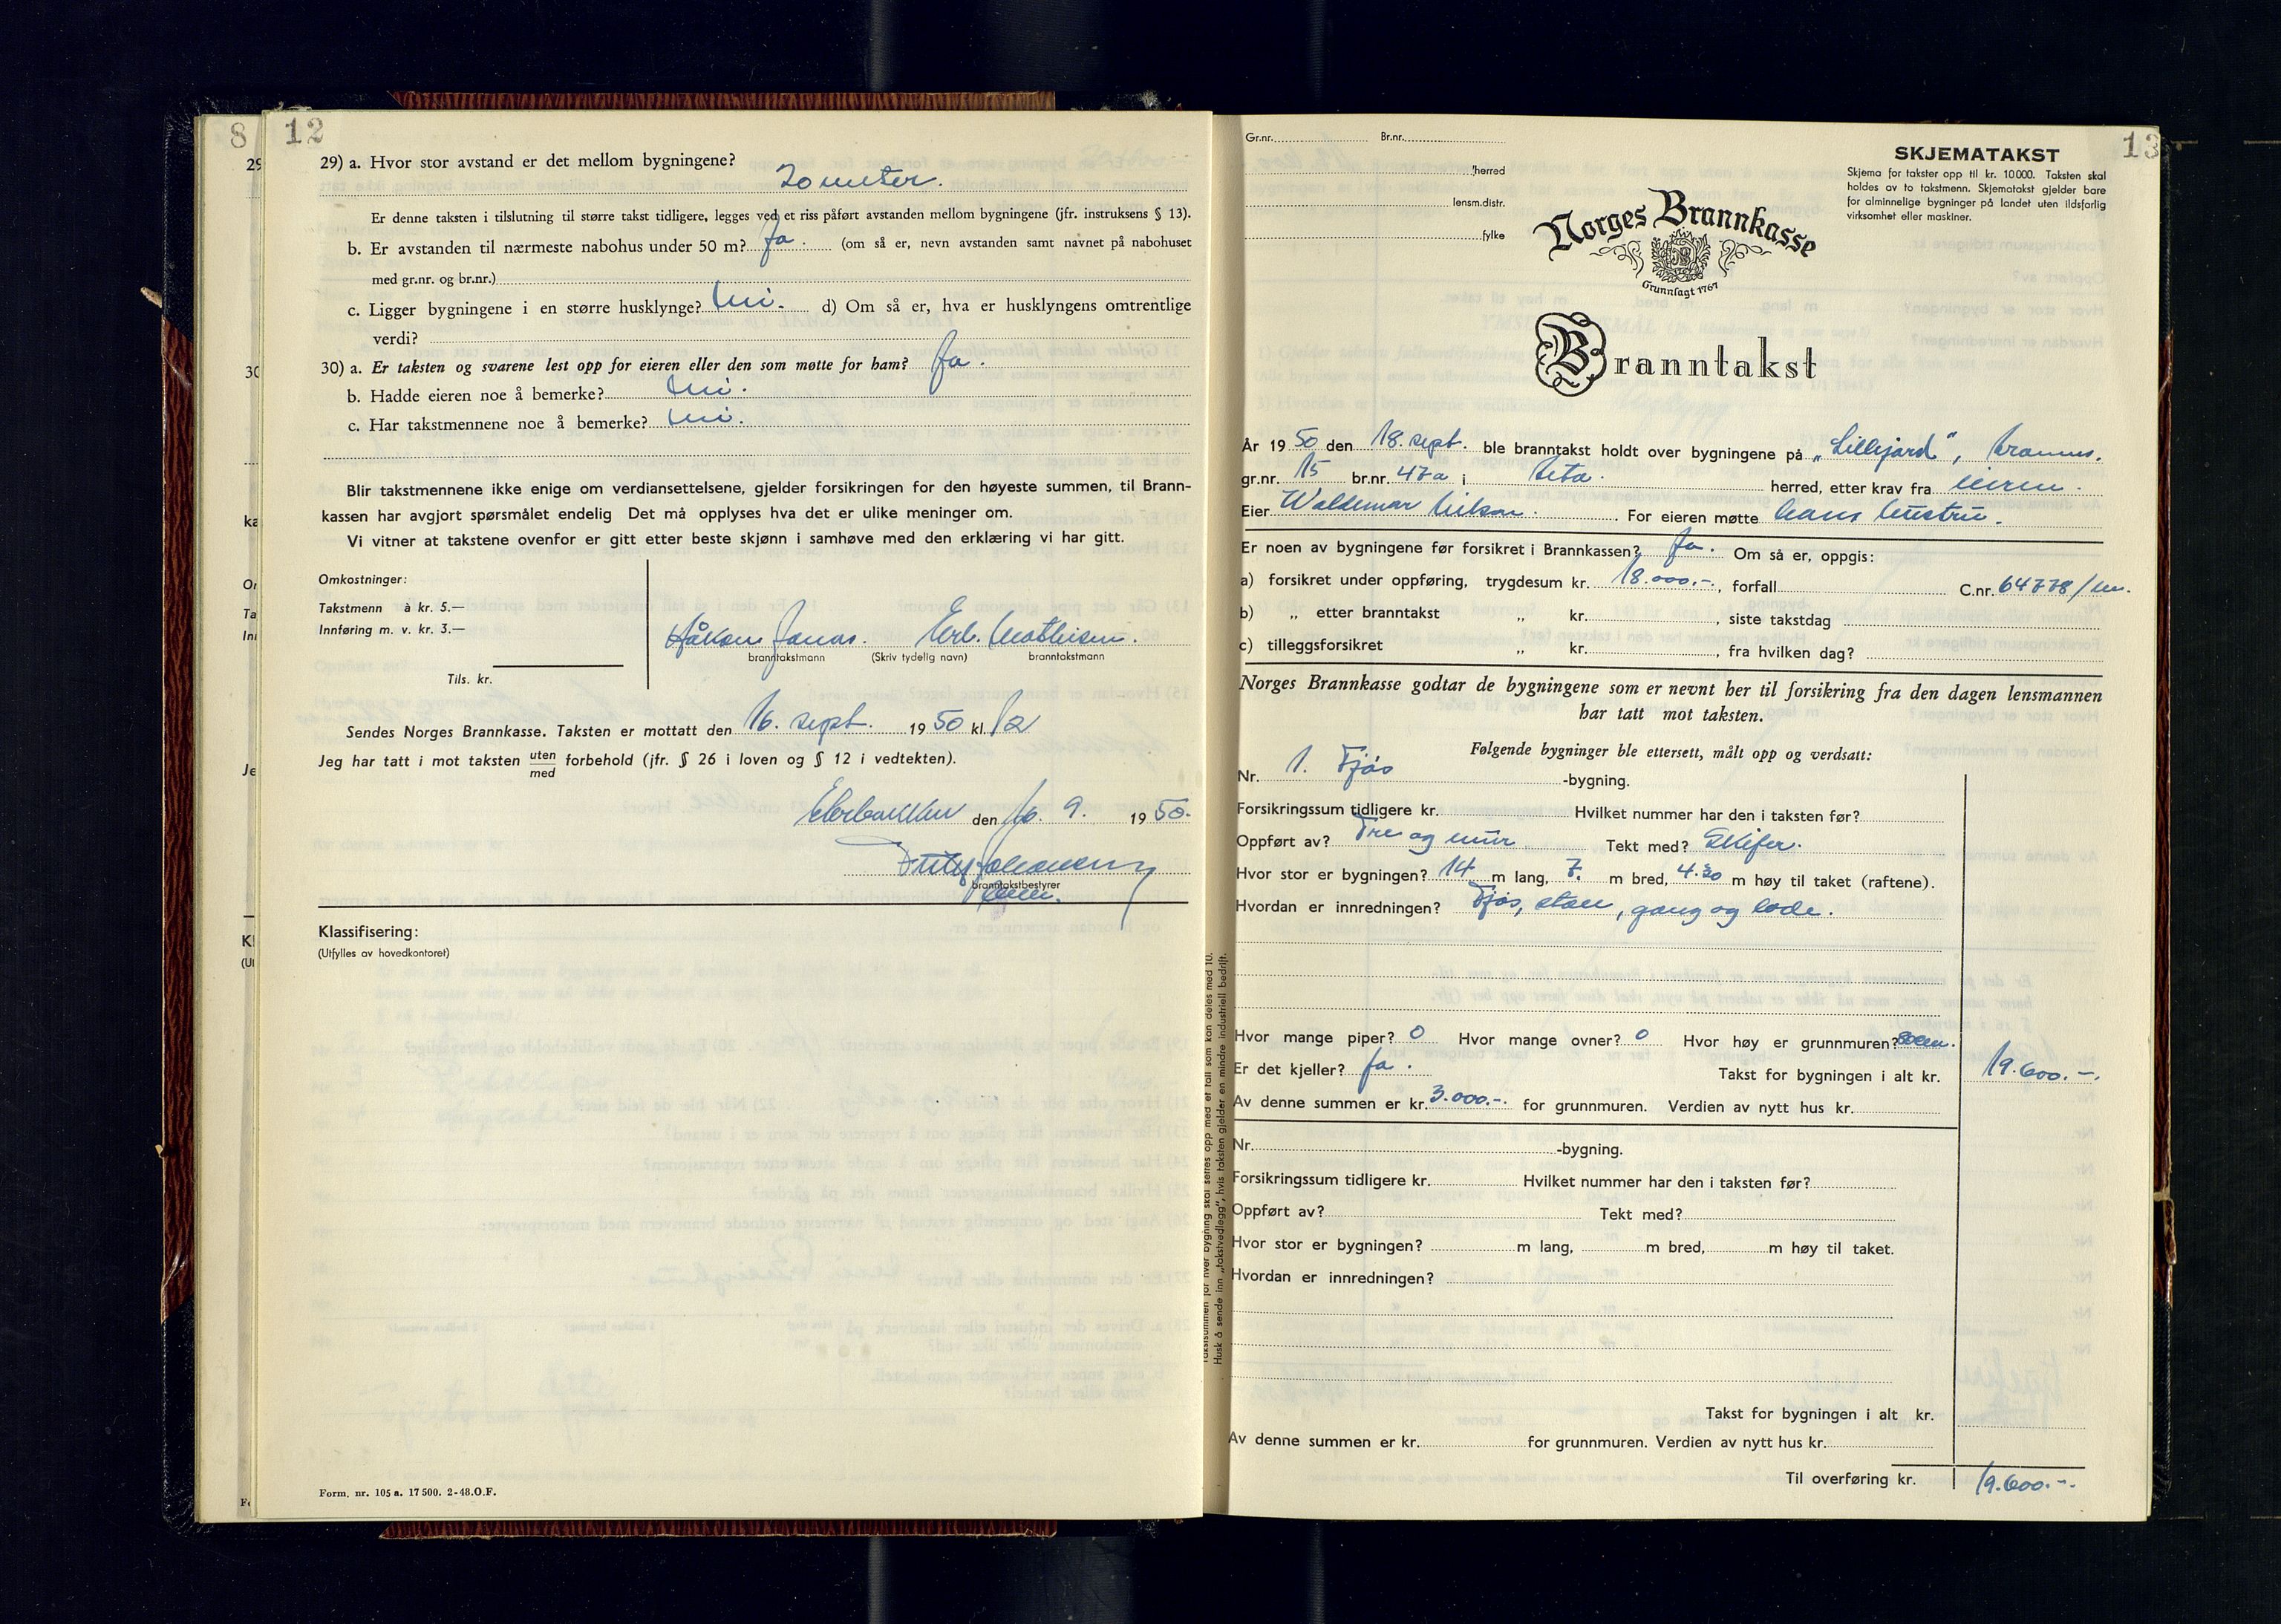 8
12
29) a. Hvor stor avstand er det mellom bygningene?
20 meter.
Er denne taksten i tilslutning til større takst tidligere, legges ved et riss påført avstanden mellom bygningene (jfr. instruksens § 13).
b. Er avstanden til nærmeste nabohus under 50 m? Ja. (om så er, nevn avstanden samt navnet på nabohuset
med gr.nr. og br.nr.)
c. Ligger bygningene i en større husklynge? Nei. d) Om så er, hva er husklyngens omtrentlige
verdi?
30) a. Er taksten og svarene lest opp for eieren eller den som møtte for ham? Ja.
b. Hadde eieren noe å bemerke? Nei.
c. Har takstmennene noe å bemerke? Nei.
Blir takstmennene ikke enige om verdiansettelsene, gjelder forsikringen for den høyeste summen, til Brann-
kassen har avgjort spørsmålet endelig Det må opplyses hva det er ulike meninger om.
Vi vitner at takstene ovenfor er gitt etter beste skjønn i samhøve med den erklæring vi har gitt.
Omkostninger:
Takstmenn à kr. 5.—
Innføring m. v. kr. 3.—
Tils. kr.
Håkon Jonas. Erl. Mathisen.
branntakstmann (Skriv tydelig navn) branntakstmann
Sendes Norges Brannkasse. Taksten er mottatt den 16. sept. 1950 kl. 12
Jeg har tatt i mot taksten uten/med forbehold (jfr. § 26 i loven og § 12 i vedtektene).
Elvebakken den 16. 9. 1950.
branntakstbestyrer
Klassifisering:
(Utfylles av hovedkontoret)
Form. nr. 105 a. 17 500. 2-48.O.F.
13
Gr.nr. Br.nr.
herred
lensm.distr.
fylke
SKJEMATAKST
Skjema for takster opp til kr. 10 000. Taksten skal
holdes av to takstmenn. Skjematakst gjelder bare
for alminnelige bygninger på landet uten ildsfarlig
virksomhet eller maskiner.
Norges Brannkasse
Grunnlagt 1767
Branntakst
År 1950 den 18. sept. ble branntakst holdt over bygningene på „Lillejord",
gr.nr. 15 br.nr. 47a i Alta. herred, etter krav fra eieren.
Eier Waldemar Nilsen. For eieren møtte hans hustru.
Er noen av bygningene før forsikret i Brannkassen? Ja. Om så er, oppgis:
a) forsikret under oppføring, trygdesum kr. 18.000.-, forfall C.nr. 64778/
b) „ etter branntakst „ kr. , siste takstdag
c) tilleggsforsikret „ kr. , fra hvilken dag?
Norges Brannkasse godtar de bygningene som er nevnt her til forsikring fra den dagen lensmannen
har tatt mot taksten.
Følgende bygninger ble ettersett, målt opp og verdsatt:
Nr. 1. Fjøs -bygning.
Forsikringssum tidligere kr. Hvilket nummer har den i taksten før?
Oppført av? Tre og mur Tekt med? Skifer.
Hvor stor er bygningen? 14 m lang, 7. m bred, 4.30 m høy til taket (raftene).
Hvordan er innredningen? Fjøs, stall, gang og lade.
Hvor mange piper? 0 Hvor mange ovner? 0 Hvor høy er grunnmuren? 80cm.
Er det kjeller? Ja. Takst for bygningen i alt kr. 19.600.-.
Av denne summen er kr. 3.000.-. for grunnmuren. Verdien av nytt hus kr.
Nr. -bygning.
Forsikringssum tidligere kr. Hvilket nummer har den i taksten før?
Oppført av? Tekt med?
Hvor stor er bygningen? m lang, m bred, m høy til taket.
Hvordan er innredningen?
Takst for bygningen i alt kr.
Av denne summen er kr. for grunnmuren. Verdien av nytt hus kr.
Til overføring kr. 19.600.-.
Takstsummen for hver bygning skal settes opp med et tall som kan deles med 10.
Husk å sende inn „takstvedlegg", hvis taksten gjelder en mindre industriell bedrift.